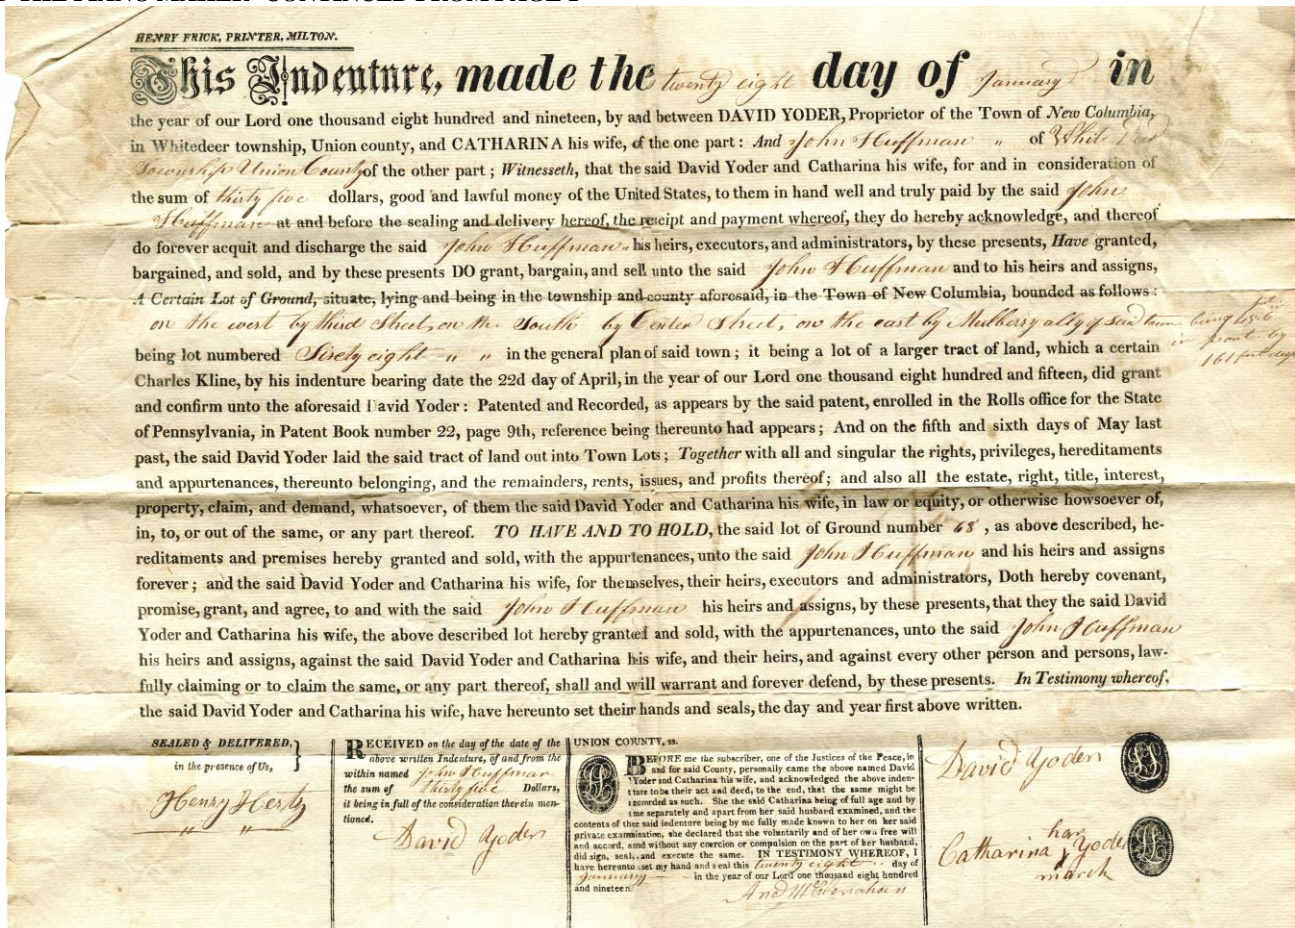 HENRY FRICK, PRINTER, MILTON.
This Indenture, made the twenty eight day of January in
the year of our Lord one thousand eight hundred and nineteen, by and between DAVID YODER, Proprietor of the Town of New Columbia,
in Whitedeer township, Union county, and CATHARINA his wife, of the one part: And John Huffman " of White Deer
Township Union County of the other part; Witnesseth, that the said David Yoder and Catharina his wife, for and in consideration of
the sum of thirty five dollars, good and lawful money of the United States, to them in hand well and truly paid by the said John
Huffman at and before the sealing and delivery hereof, the receipt and payment whereof, they do hereby acknowledge, and thereof
do forever acquit and discharge the said John Huffman " his heirs, executors, and administrators, by these presents, Have granted,
bargained, and sold, and by these presents DO grant, bargain, and sell unto the said John Huffman and to his heirs and assigns,
A Certain Lot of Ground, situate, lying and being in the township and county aforesaid, in the Town of New Columbia, bounded as follows:
on the west by third Street, on the South by Center Street, on the east by Mulberry ally of said town being
in front by
161 feet
being lot numbered Sixety eight " " in the general plan of said town; it being a lot of a larger tract of land, which a certain
Charles Kline, by his indenture bearing date the 22d day of April, in the year of our Lord one thousand eight hundred and fifteen, did grant
and confirm unto the aforesaid David Yoder: Patented and Recorded, as appears by the said patent, enrolled in the Rolls office for the State
of Pennsylvania, in Patent Book number 22, page 9th, reference being thereunto had appears; And on the fifth and sixth days of May last
past, the said David Yoder laid the said tract of land out into Town Lots; Together with all and singular the rights, privileges, hereditaments
and appurtenances, thereunto belonging, and the remainders, rents, issues, and profits thereof; and also all the estate, right, title, interest,
property, claim, and demand, whatsoever, of them the said David Yoder and Catharina his wife, in law or equity, or otherwise howsoever of,
in, to, or out of the same, or any part thereof. TO HAVE AND TO HOLD, the said lot of Ground number 68, as above described, he-
reditaments and premises hereby granted and sold, with the appurtenances, unto the said John Huffman and his heirs and assigns
forever; and the said David Yoder and Catharina his wife, for themselves, their heirs, executors and administrators, Doth hereby covenant,
promise, grant, and agree, to and with the said John Huffman his heirs and assigns, by these presents, that they the said David
Yoder and Catharina his wife, the above described lot hereby granted and sold, with the appurtenances, unto the said John Huffman
his heirs and assigns, against the said David Yoder and Catharina his wife, and their heirs, and against every other person and persons, law-
fully claiming or to claim the same, or any part thereof, shall and will warrant and forever defend, by these presents. In Testimony whereof,
the said David Yoder and Catharina his wife, have hereunto set their hands and seals, the day and year first above written.
SEALED & DELIVERED,
in the presence of Us,
Henry Hertz
" "
RECEIVED on the day of the date of the
above written Indenture, of and from the
within named John Huffman
the sum of Thirty five Dollars,
it being in full of the consideration therein men-
tioned.
David Yoder
UNION COUNTY, ss.
BEFORE me the subscriber, one of the Justices of the Peace, in
and for said County, personally came the above named David
Yoder and Catharina his wife, and acknowledged the above inden-
ture to be their act and deed, to the end, that the same might be
recorded as such. She the said Catharina being of full age and by
me separately and apart from her said husband examined, and the
contents of the said indenture being by me fully made known to her on her said
private examination, she declared that she voluntarily and of her own free will
and accord, and without any coercion or compulsion on the part of her husband,
did sign, seal, and execute the same. IN TESTIMONY WHEREOF, I
have hereunto set my hand and seal this twenty eight day of
January in the year of our Lord one thousand eight hundred
and nineteen.
David Yoder
her
Catharina x Yoder
march